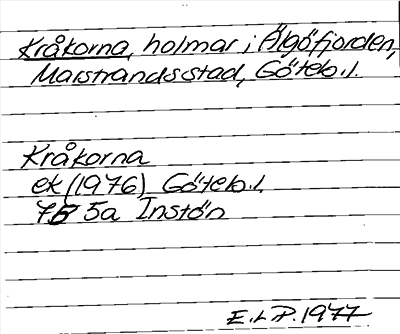 Kråkorna, holmar i Älgöfjorden,
Marstrands stad, Göteb.l.
Kråkorna
ek (1976) Göteb.l.
7B 5a Instön
E.L.P. 1977